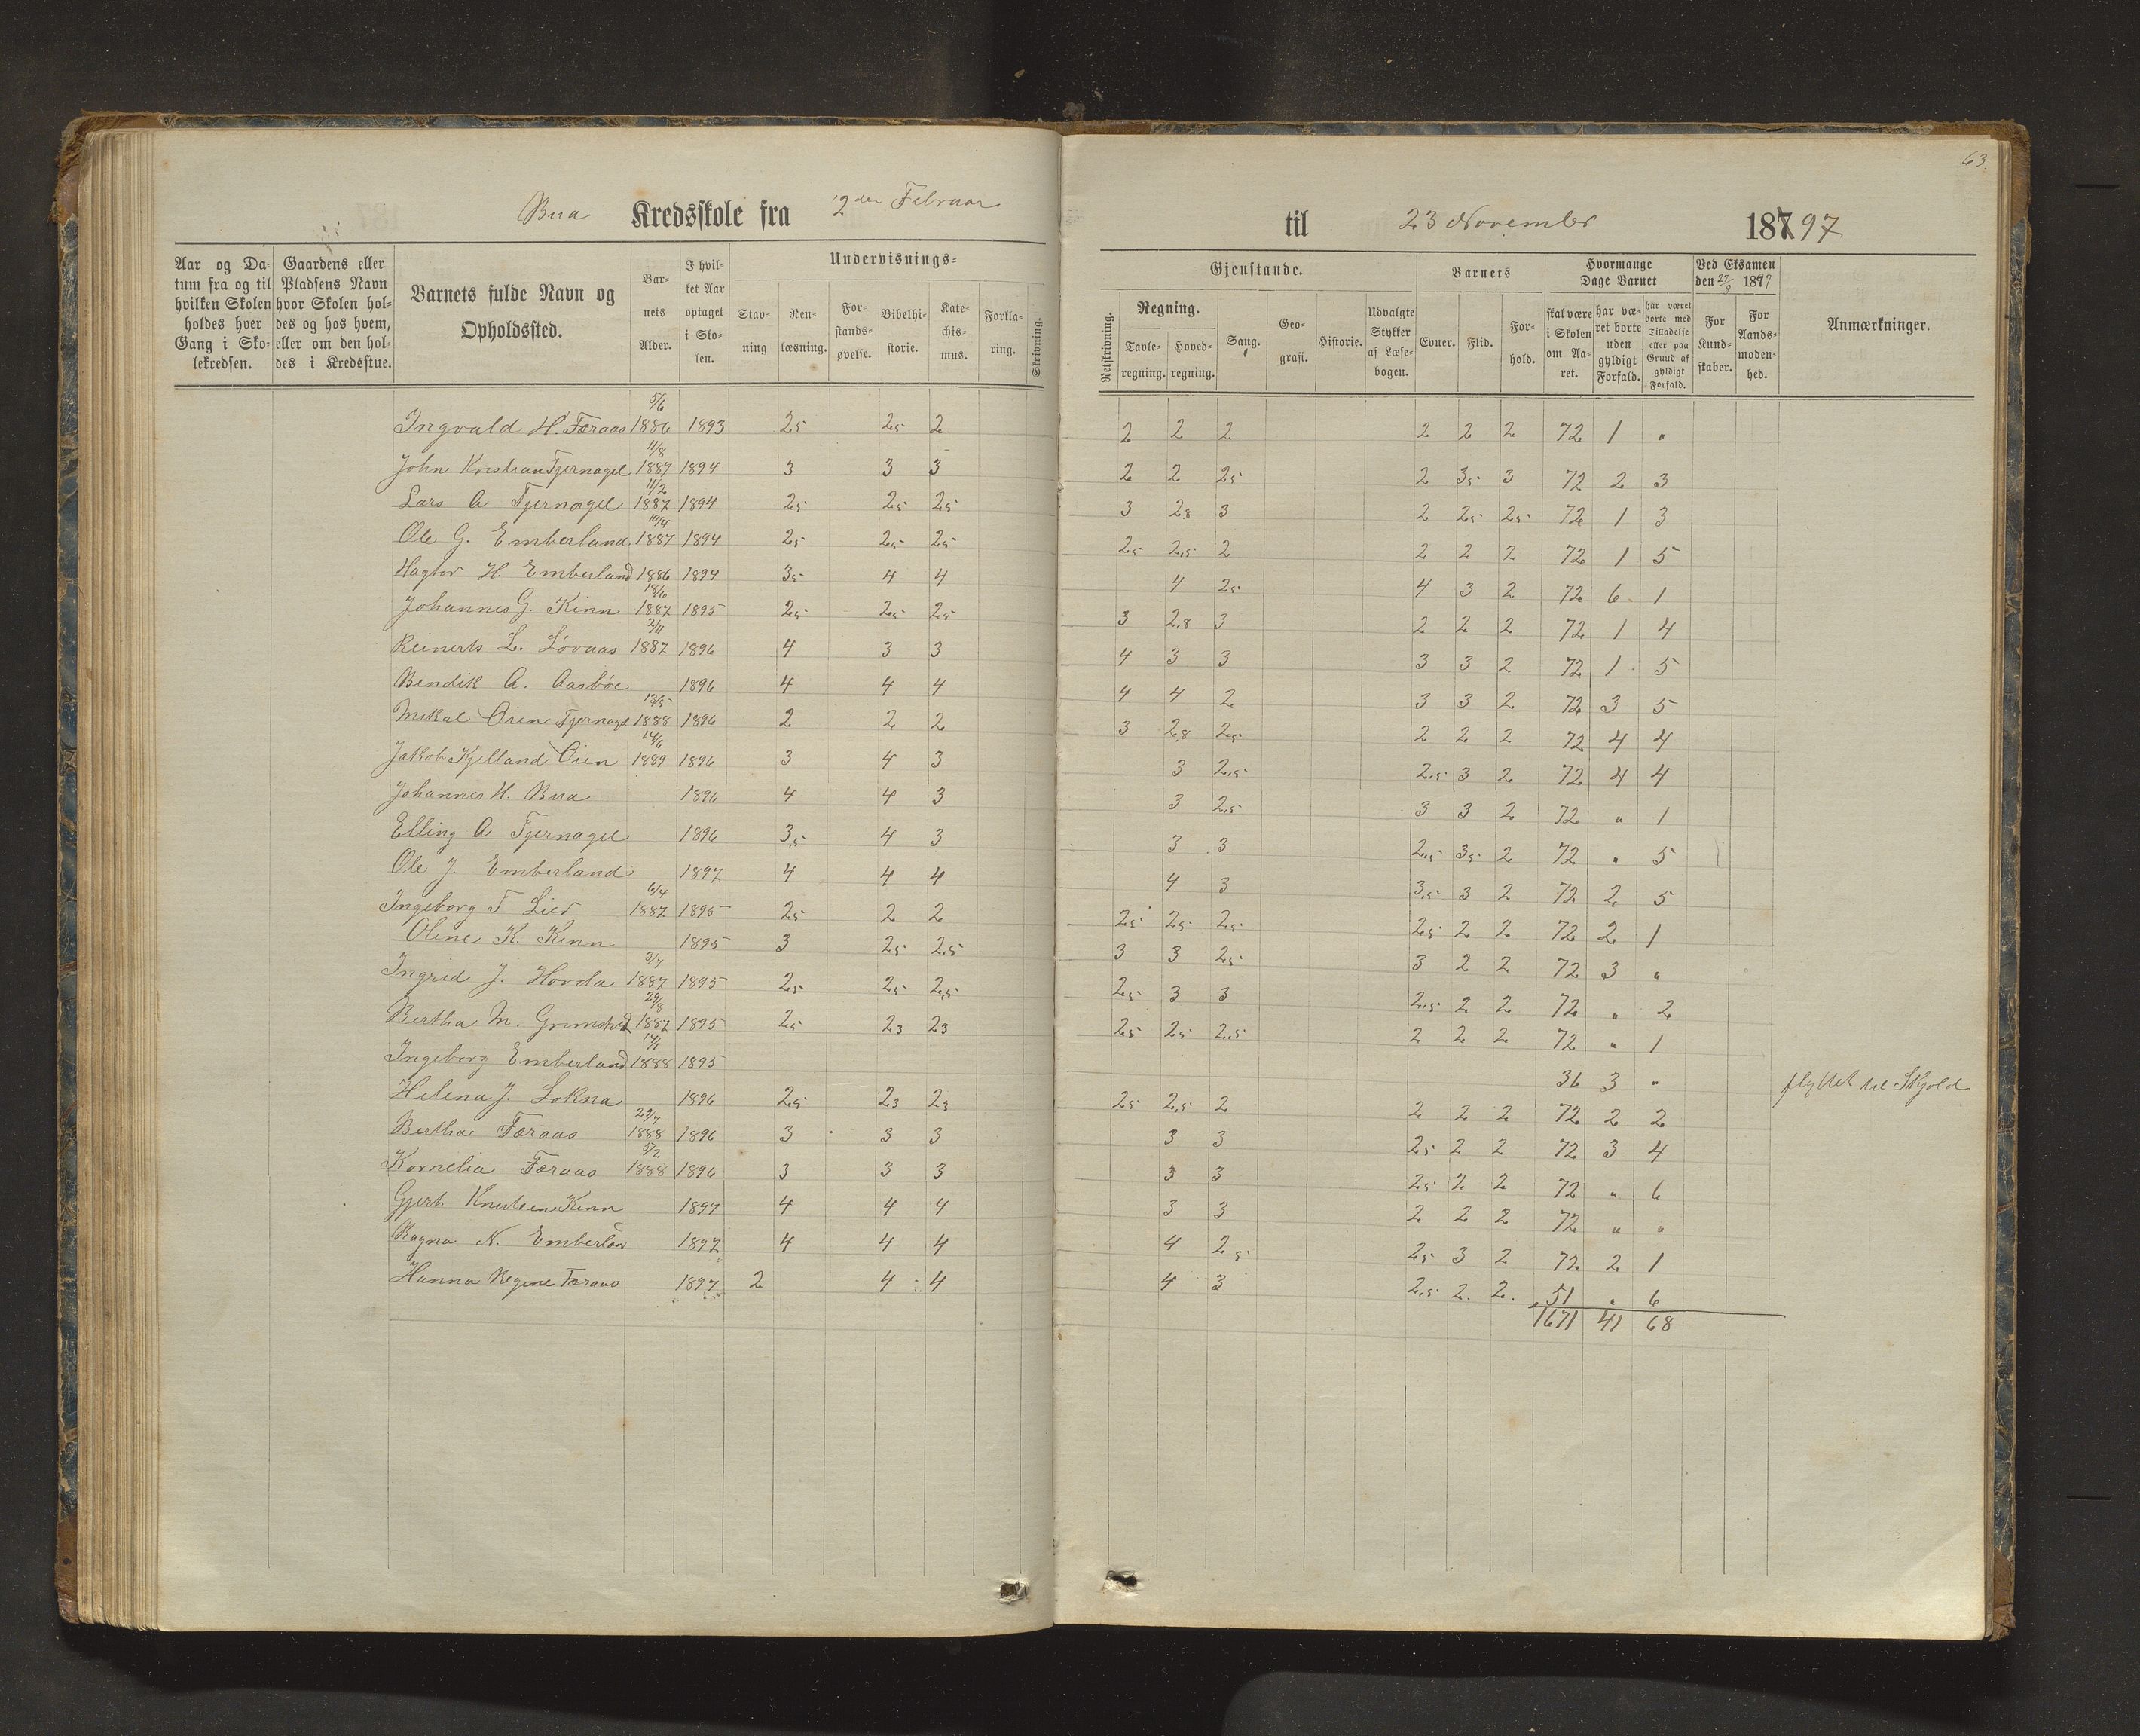 63.
Bua Kredsskole fra 2den Februar til 23 November 18797
Aar og Datum fra og til hvilken Skolen holdes hver Gang i Skolekredsen.
Gaardens eller Pladsens Navn hvor Skolen holdes og hos hvem, eller om den holdes i Kredsstue.
Barnets fulde Navn og Opholdssted.
Barnets Alder.
I hvilket Aar optaget i Skolen.
Undervisnings-
Stavning
Renlæsning.
Forstandsøvelse.
Bibelhistorie.
Katechismus.
Forklaring.
Skrivning.
Gjenstande.
Retskrivning.
Regning.
Tavleregning.
Hovedregning.
Sang.
Geografi.
Historie.
Udvalgte Stykker af Læsebogen.
Barnets
Evner.
Flid.
Forhold.
Hvormange Dage Barnet
skal være i Skolen om Aaret.
har været borte uden gyldigt Forfald.
har været borte med Tilladelse eller paa Grund af gyldigt Forfald.
Ved Eksamen den 27/8 1897
For Kundskaber.
For Aandsmodenhed.
Anmærkninger.
Ingvald H. Færaas 5/6 1886 1893 25 25 2 2 2 2 2 2 2 72 1 "
John Kristian Tjernagel 11/8 1887 1894 3 3 3 2 2 25 2 35 3 72 2 3
Lars A Tjernagel 11/2 1887 1894 25 25 25 3 2,8 3 2 25 25 72 1 3
Ole G. Emberland 10/4 1887 1894 25 25 25 25 2,5 2 2 2 2 72 1 5
Hagtor H. Emberland 1886 1894 35 4 4 4 25 4 3 2 72 6 1
Johannes G. Kinn 18/6 1887 1895 25 25 25 3 2,8 3 2 2 2 72 1 4
Reinerts L. Løvaas 2/11 1887 1896 4 3 3 4 3 3 3 3 2 72 1 5
Bendik A. Aasbøe 1896 4 4 4 4 4 2 3 3 2 72 3 5
Mikal Øien Tjernagel 13/5 1888 1896 2 2 2 3 2,8 25 2 2 2 72 4 4
Jakob Kjelland Øien 14/6 1889 1896 3 4 3 3 2,5 2,5 3 2 72 4 4
Johannes H. Bua 1896 4 4 3 3 2,5 3 3 2 72 " 1
Elling A Tjernagel 1896 3,5 4 3 3 3 2,5 35 2 72 " 5
Ole J. Emberland 1897 4 4 4 4 3 3,5 3 2 72 2 5
Ingeborg T Lier 6/4 1887 1895 25 2 2 25 25 25 25 2 2 72 2 1
Oline K. Kinn 1895 3 25 2,5 3 3 25 3 2 2 72 3 "
Ingrid J. Hovda 3/7 1887 1895 25 25 2,5 25 3 3 2,5 2 2 72 " 2
Bertha M. 29/8 1887 1895 25 23 23 25 25 2,5 2 2 2 72 " 1
Ingeborg Emberland 14/1 1888 1895 36 3 " flyttet til Skjold
Helena J. Lokna 1896 25 23 23 25 2,5 2 2 2 2 72 2 2
Bertha Færaas 29/7 1888 1896 3 3 3 3 3 25 2 2 72 3 4
Kornelia Færaas 5/2 1888 1896 3 3 3 3 3 25 2 2 72 " 6
Gjert Knutsen Kinn 1897 4 4 4 3 3 2 2 2 72 " "
Ragna N. Emberlan 1897 4 4 4 4 25 25 3 2 72 2 1
Hanna Regine Færaas 1897 2 4 4 4 3 2,5 2. 2. 51 " 6
1671 41 68